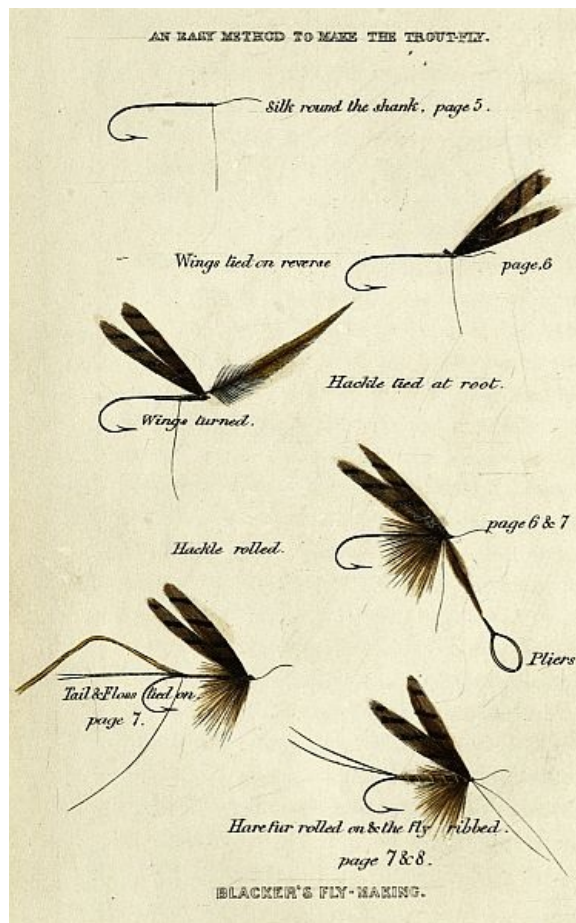 AN EASY METHOD TO MAKE THE TROUT-FLY.
Silk round the shank, page 5.
Wings tied on reverse
page.6
Hackle tied at root.
Wings turned.
page 6 & 7
Hackle rolled.
Pliers
Tail & Floss tied on.
page 7.
Hare fur rolled on & the fly ribbed.
page 7 & 8.
BLACKER'S FLY-MAKING.